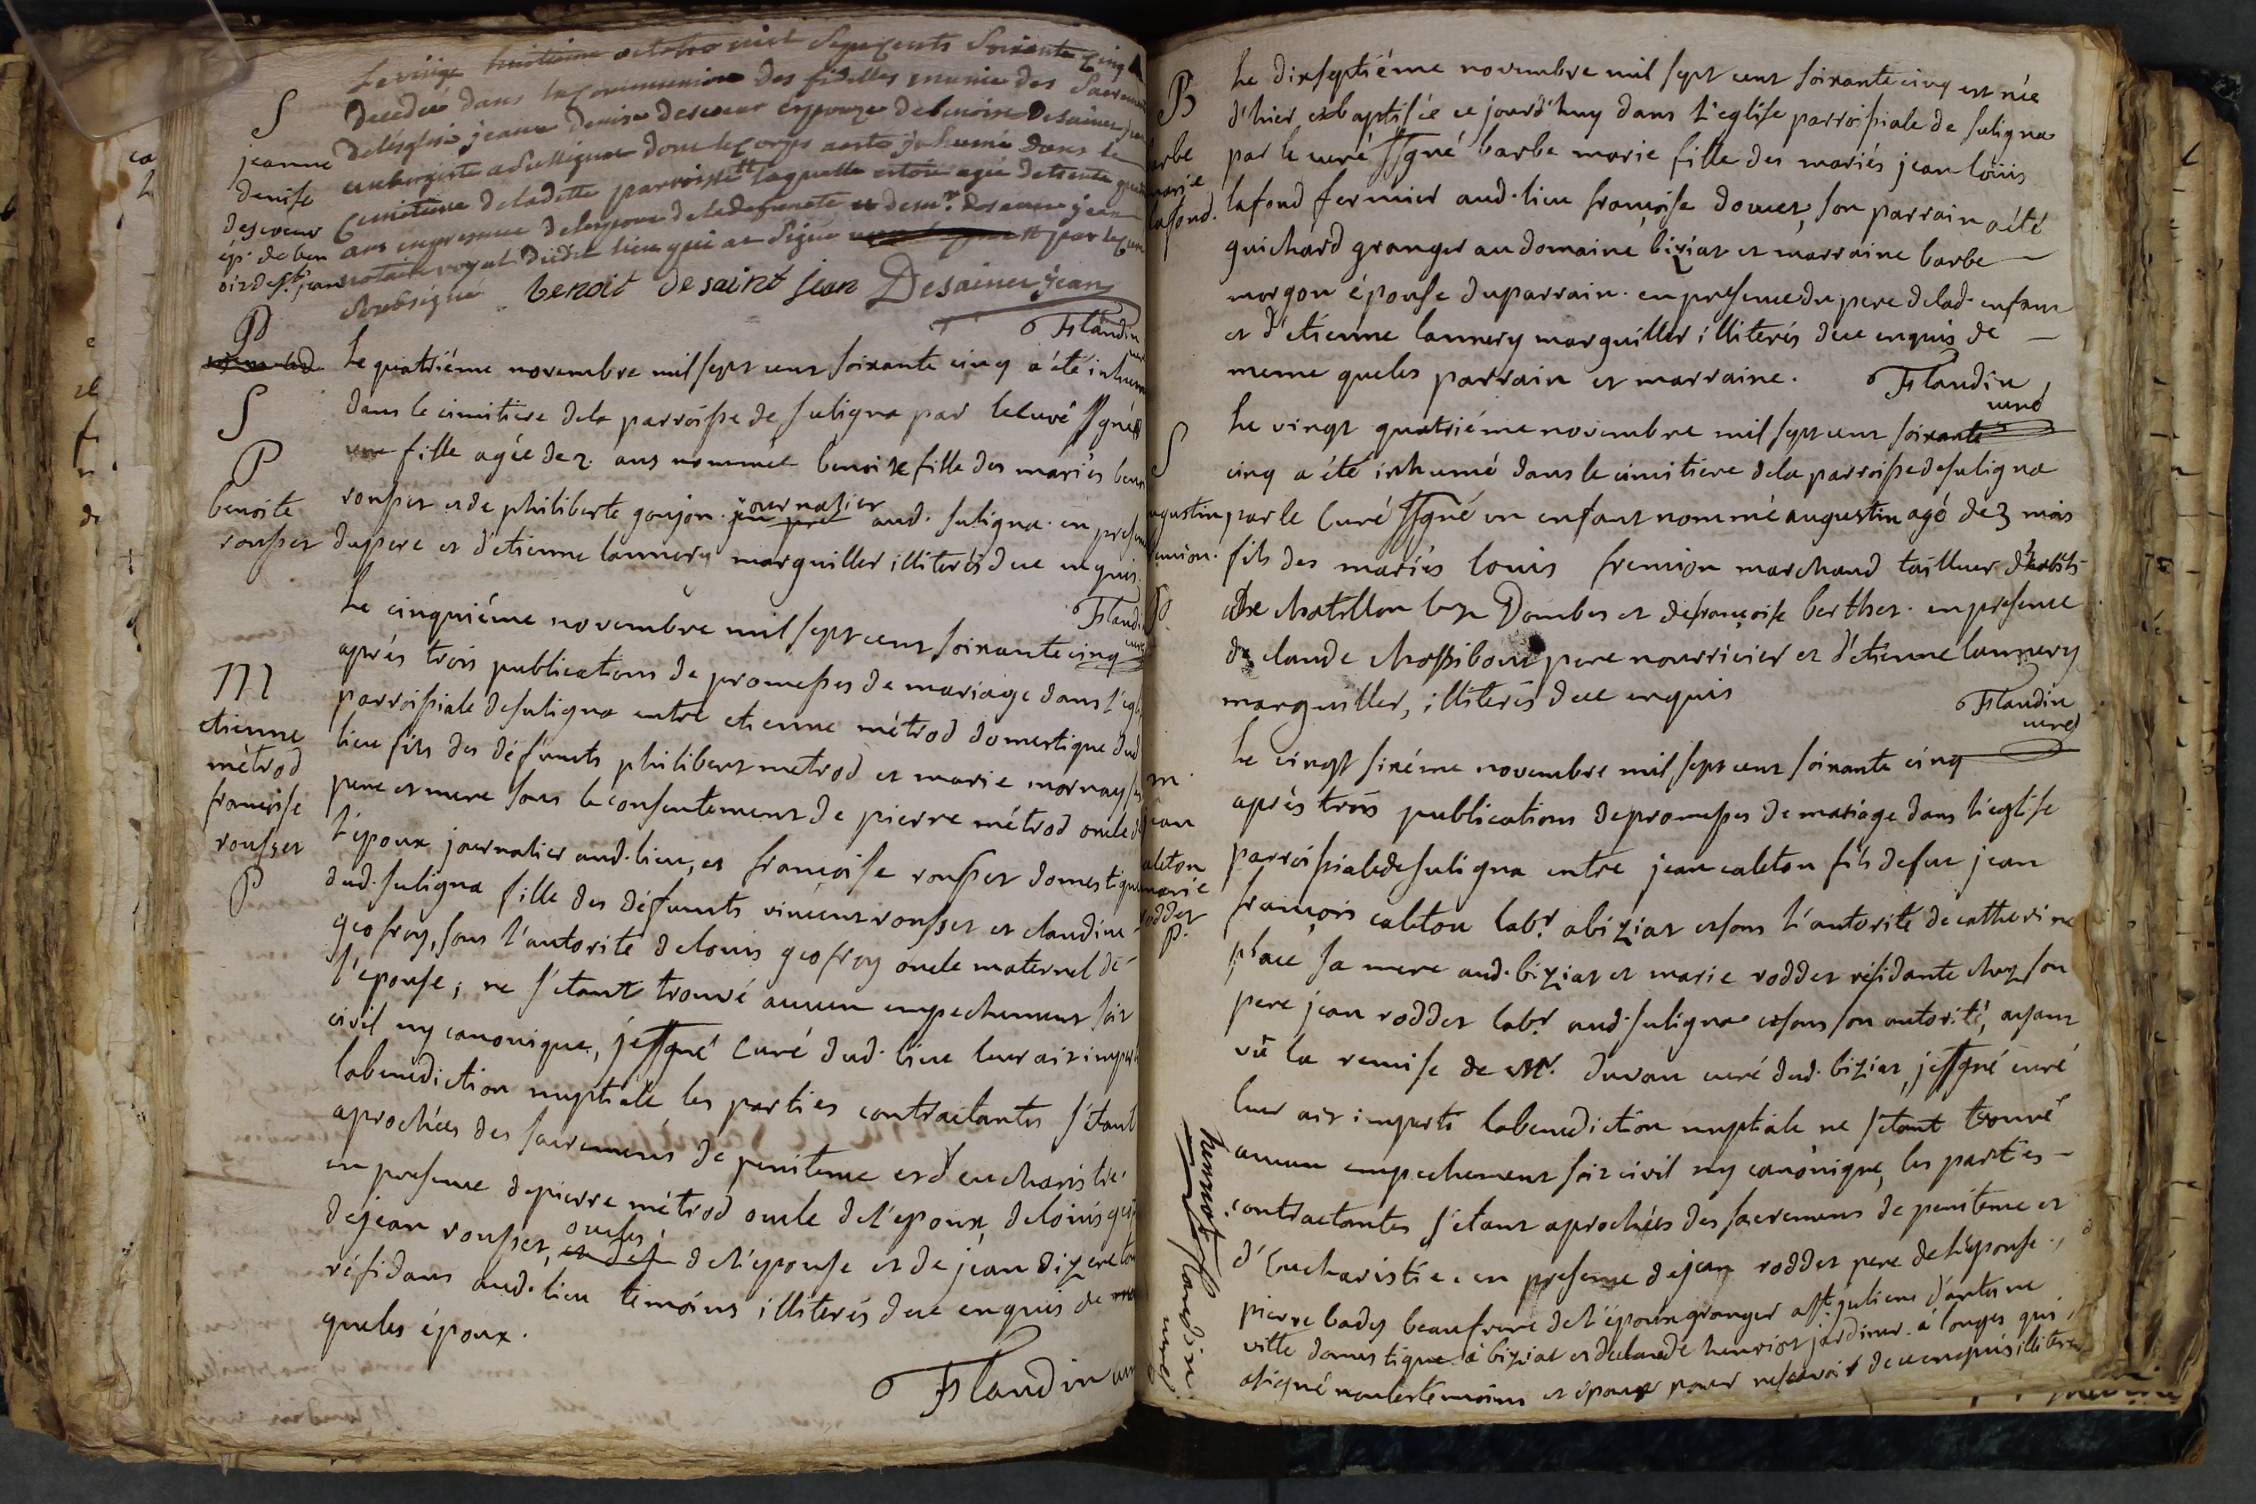 Le vingt huitieme octobre mil Sept Cents Soixante Cinq
decedeé dans la Communion des fidelles munie des Sacrem
S
jeanne
denise
descoeur
ép. de ben
oit de st. jean
de l'église jeanne denise descoeur épouze de benoist de saint jean
aubergiste a Sulligna dont le Corps aesté inhumé dans le
Cemetierre de ladette parroisse laquelle estoit ageé de trente
ans en presence de lepoux de la defuncte et de mr. descoeur jean
notaire royal dudit lieu qui at Signé par le Curé
soubsigné benoit de saint jean Desaint jean
Flandin curé
P
Le quatriéme novembre mil sept cent soixante cinq a été inhumé
S
dans le cimitiere dela parroisse de suligna par le curé ssgné
P
benoite
rousset
une fille agée de 2 ans nommeé benoite fille des mariés benoit
rousset et de philiberte goujon journalier aud. suligna en presence
du pere et d'etienne lannery marguiller illiterés de ce enquis
Flandin curé
Le cinquiéme novembre mil sept cent soixante cinq
M
etienne
métrod
françoise
rousset
P
aprés trois publications de promesses de mariage dans l'eglise
parroissiale de suligna entre etienne métrod domestique dud
lieu fils des défunts philibert metrod et marie mornay ses
pere et mere sous le consentement de pierre métrod oncle de
l'époux journalier aud. lieu, et françoise rousset domestique
dud. suligna fille des défunts vincent rousset et claudine
geofroy, sous l'autorité de louis geofroy oncle maternel de
l'epouse; ne s'etant trouvé aucun empechement soit
civil ny canonique, je ssgné Curé dud. lieu leur ait imparti
la benediction nuptiale les parties contractantes s'étant
aprochées des sacremens de penitence et d'eucharistie
en presence de pierre métrod oncle de l'epoux, de loüis geofroy
de jean rousset, oncles de l'épouse et de jean dizereton
résidans aud. lieu témoins illiterés de ce enquis de
que les époux.
Flandin curé
B
barbe
marie
lafond.
Le dixseptiéme novembre mil sept cent soixante cinq est née
d'hier et baptisée ce jourd'huy dans l'eglise parroissiale de suligna
par le curé ssgné barbe marie fille des mariés jean loüis
lafond fermier aud. lieu françoise doucet, son parrain a été
guichard granger au domaine biziat et marraine barbe
morgon épouse du parrain. en presence du pere de lad. enfant
et d'étienne lannery marguiller illiterés de ce enquis de
meme que les parrain et marraine. Flandin curé
S
augustin
fremion.
P.
Le vingt quatriéme novembre mil sept cent soixante
cinq a été inhumé dans le cimitiere dela parroisse de suligna
par le Curé ssgné un enfant nommé augustin agé de 3 mois
fils des mariés louis fremion marchand tailleur d'habits
de Chatillon lez Dombes et de françoise berthet. en presence
de claude Chassibout pere nourricier et d'étienne lannery
marguiller, illiterés de ce enquis
Flandin curé
Le vingt sixéme novembre mil sept cent soixante cinq
m.
jean
caleton
marie
roddet
P.
aprés trois publications de promesses de mariage dans l'eglise
parroissiale de suligna entre jean caleton fils de feu jean
françois caleton labr. a biziat et sous l'autorité de catherine
place sa mere aud. biziat et marie roddet résidante chez son
pere jean roddet labr. aud. suligna et sous son autorité, ayant
vû la remise de Mr. duvau curé dud. biziat, je ssgné curé
leur ait imparti la benediction nuptiale ne s'étant trouvé
aucun empechement soit civil ny canonique, les parties
contractantes s'étant aprochées des sacremens de penitence et
d'Eucharistie. en presence de jean roddet pere de l'épouse,
pierre bady beaufrere de l'époux granger a st. julien d'antoine
ville domestique à biziat et de claude henriot jardinier à longes qui
a signé non les témoins et époux pour ne savoir de ce enquis illiterés
henriot
Flandin curé